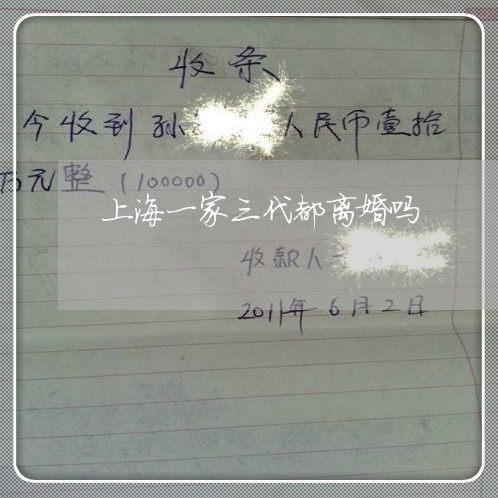 收条
今收到孙人民币壹拾
万元整（100000）
上海一家三代都离婚吗
收款人
2011年6月2日